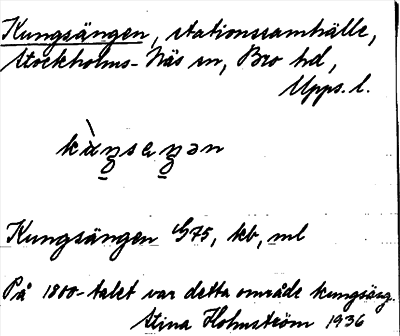 Kungsängen, stationssamhälle,
Stockholms-Näs sn, Bro hd,
Upps. l.
Kungsängen G75, kb, ml
På 1800-talet var detta område kungsäng.
Stina Holmström 1936